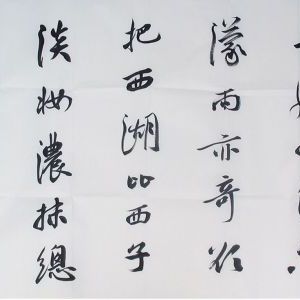 濛雨亦奇欲
把西湖比西子
淡妆濃抹總